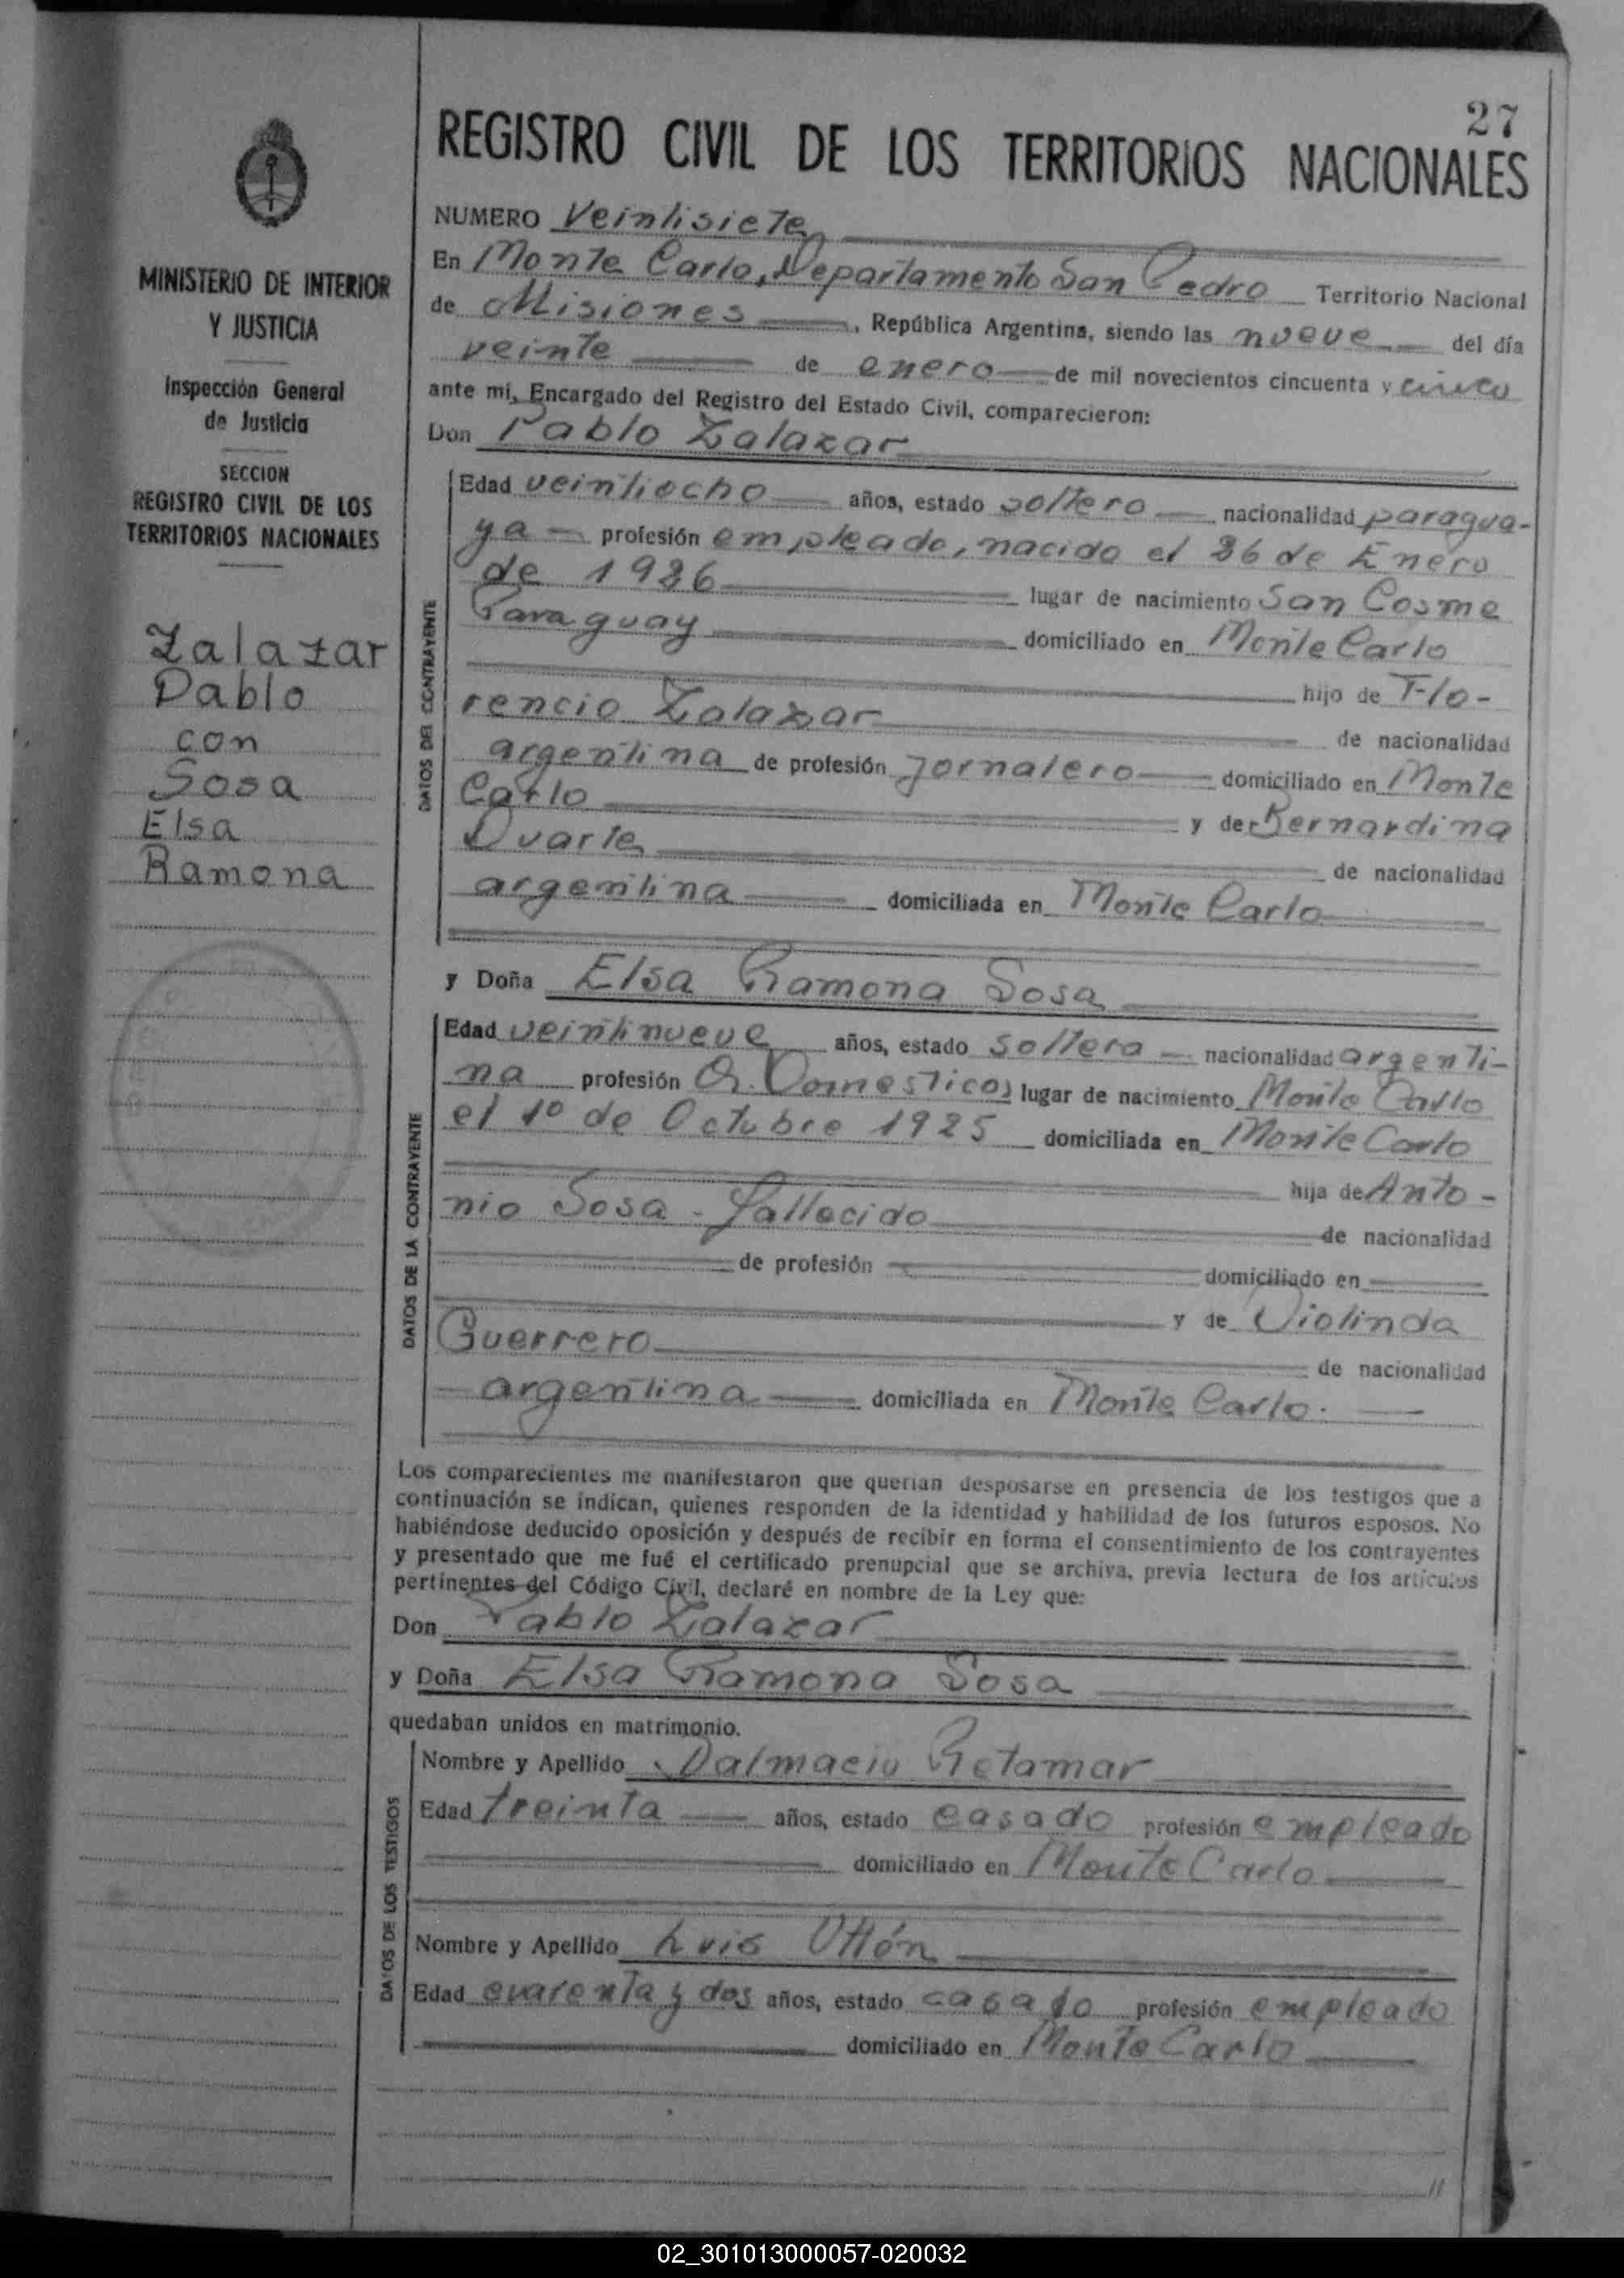 27
REGISTRO CIVIL DE LOS TERRITORIOS NACIONALES
MINISTERIO DE INTERIOR
Y JUSTICIA
Inspección General
de Justicia
SECCION
REGISTRO CIVIL DE LOS
TERRITORIOS NACIONALES
Zalazar
Pablo
con
Sosa
Elsa
Ramona
NUMERO Veintisiete
En Monte Carlo, Departamento San Pedro Territorio Nacional
de Misiones, República Argentina, siendo las nueve del día
veinte de enero de mil novecientos cincuenta y cinco
ante mi, Encargado del Registro del Estado Civil, comparecieron:
Don Pablo Zalazar
DATOS DEL CONTRAYENTE
Edad veintiocho años, estado soltero nacionalidad paragua-
ya profesión empleado, nacido el 26 de Enero
de 1926 lugar de nacimiento San Cosme
Paraguay domiciliado en Monte Carlo
hijo de Flo-
rencio Zalazar de nacionalidad
argentina de profesión jornalero domiciliado en Monte
Carlo y de Bernardina
Duarte de nacionalidad
argentina domiciliada en Monte Carlo
y Doña Elsa Ramona Sosa
DATOS DE LA CONTRAYENTE
Edad veintinueve años, estado soltera nacionalidad argenti-
na profesión Q. Domesticos lugar de nacimiento Monte Carlo
el 1º de Octubre 1925 domiciliada en Monte Carlo
hija de Anto-
nio Sosa - fallecido de nacionalidad
de profesión domiciliado en
y de Violinda
Guerrero de nacionalidad
argentina domiciliada en Monte Carlo.
Los comparecientes me manifestaron que querian desposarse en presencia de los testigos que a
continuación se indican, quienes responden de la identidad y habilidad de los futuros esposos. No
habiéndose deducido oposición y después de recibir en forma el consentimiento de los contrayentes
y presentado que me fué el certificado prenupcial que se archiva, previa lectura de los artículos
pertinentes del Código Civil, declaré en nombre de la Ley que:
Don Pablo Zalazar
y Doña Elsa Ramona Sosa
quedaban unidos en matrimonio.
DATOS DE LOS TESTIGOS
Nombre y Apellido Dalmacio Retamar
Edad treinta años, estado casado profesión empleado
domiciliado en Monte Carlo
Nombre y Apellido Luis Ottón
Edad cuarenta y dos años, estado casado profesión empleado
domiciliado en Monte Carlo
//
02_301013000057-020032